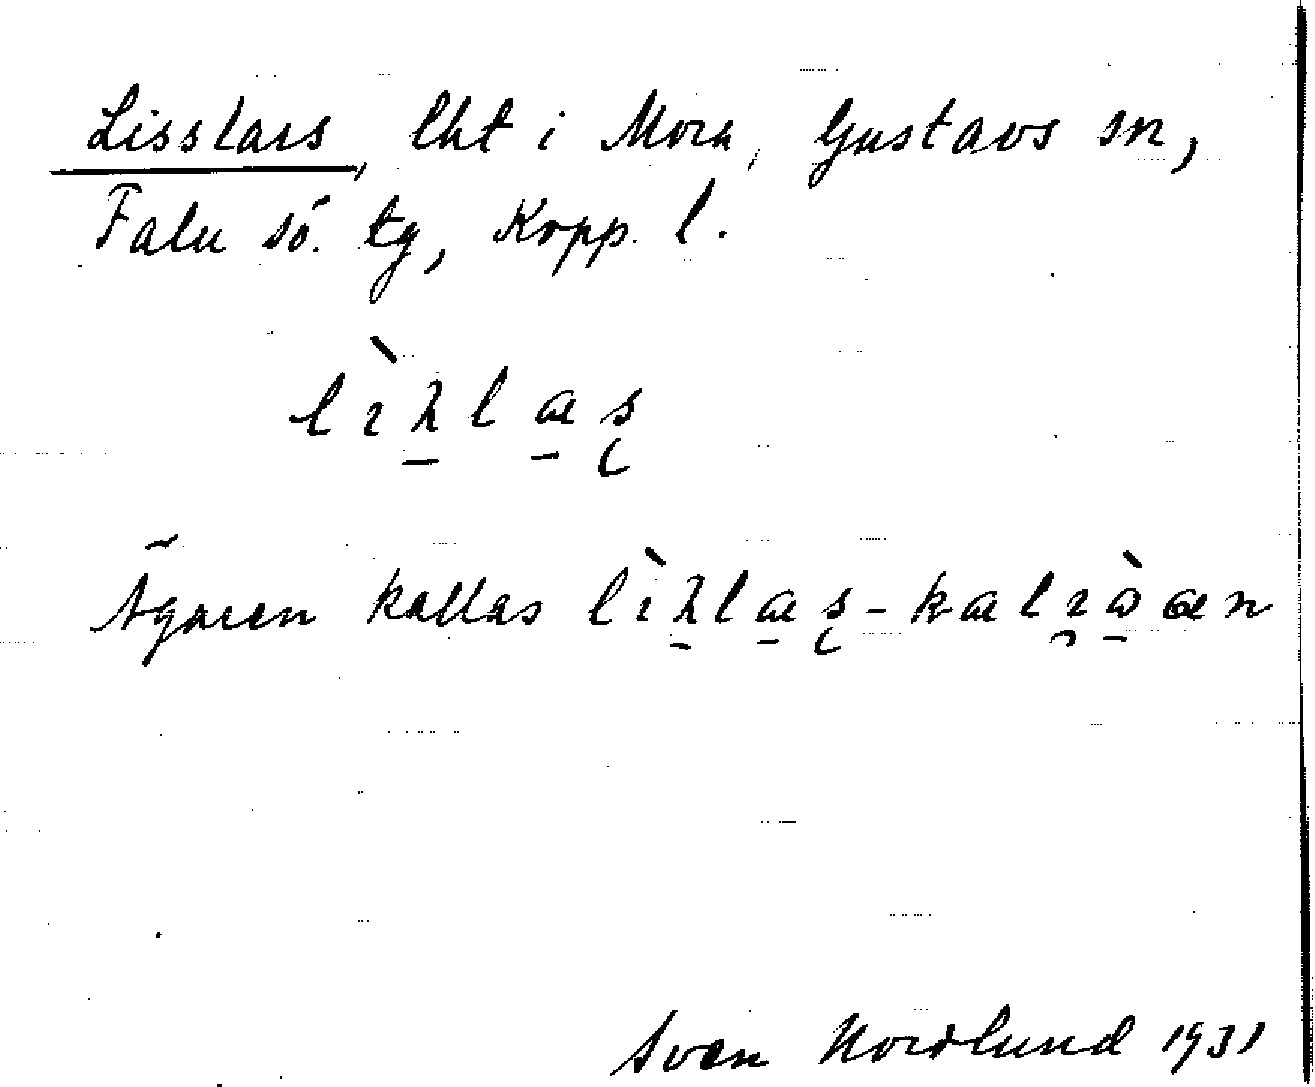 Lisslars, lht i Mora, Gustavs sn,
Falu sö. tg, Kopp. l.
Ägaren kallas
Sven Nordlund 1931